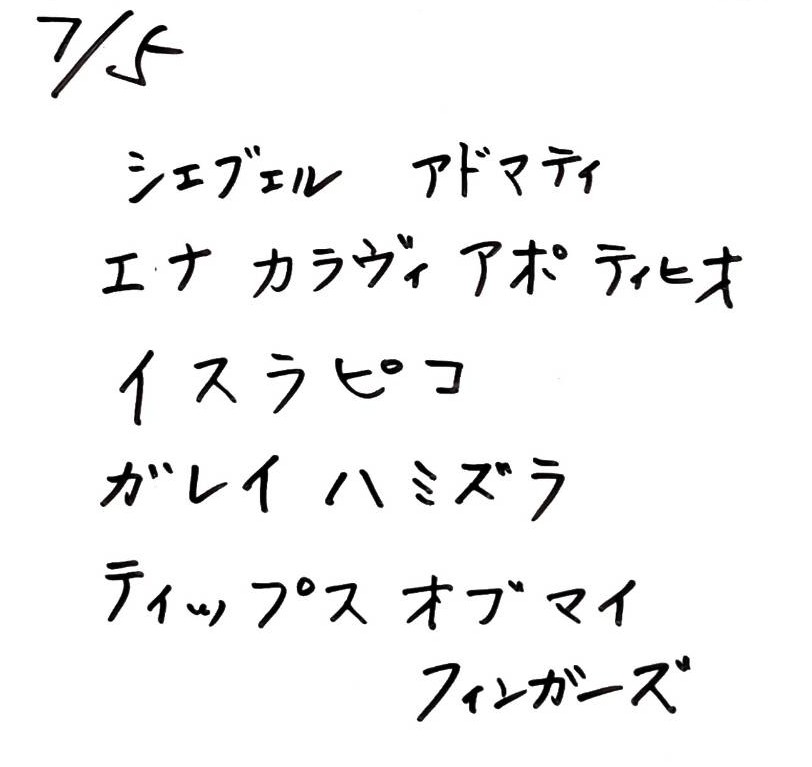 7/5
シェブェル アドマティ
エナ カラヴィ アポ ティヒオ
イスラピコ
ガレイ ハミズラ
ティップス オブ マイ
フィンガーズ